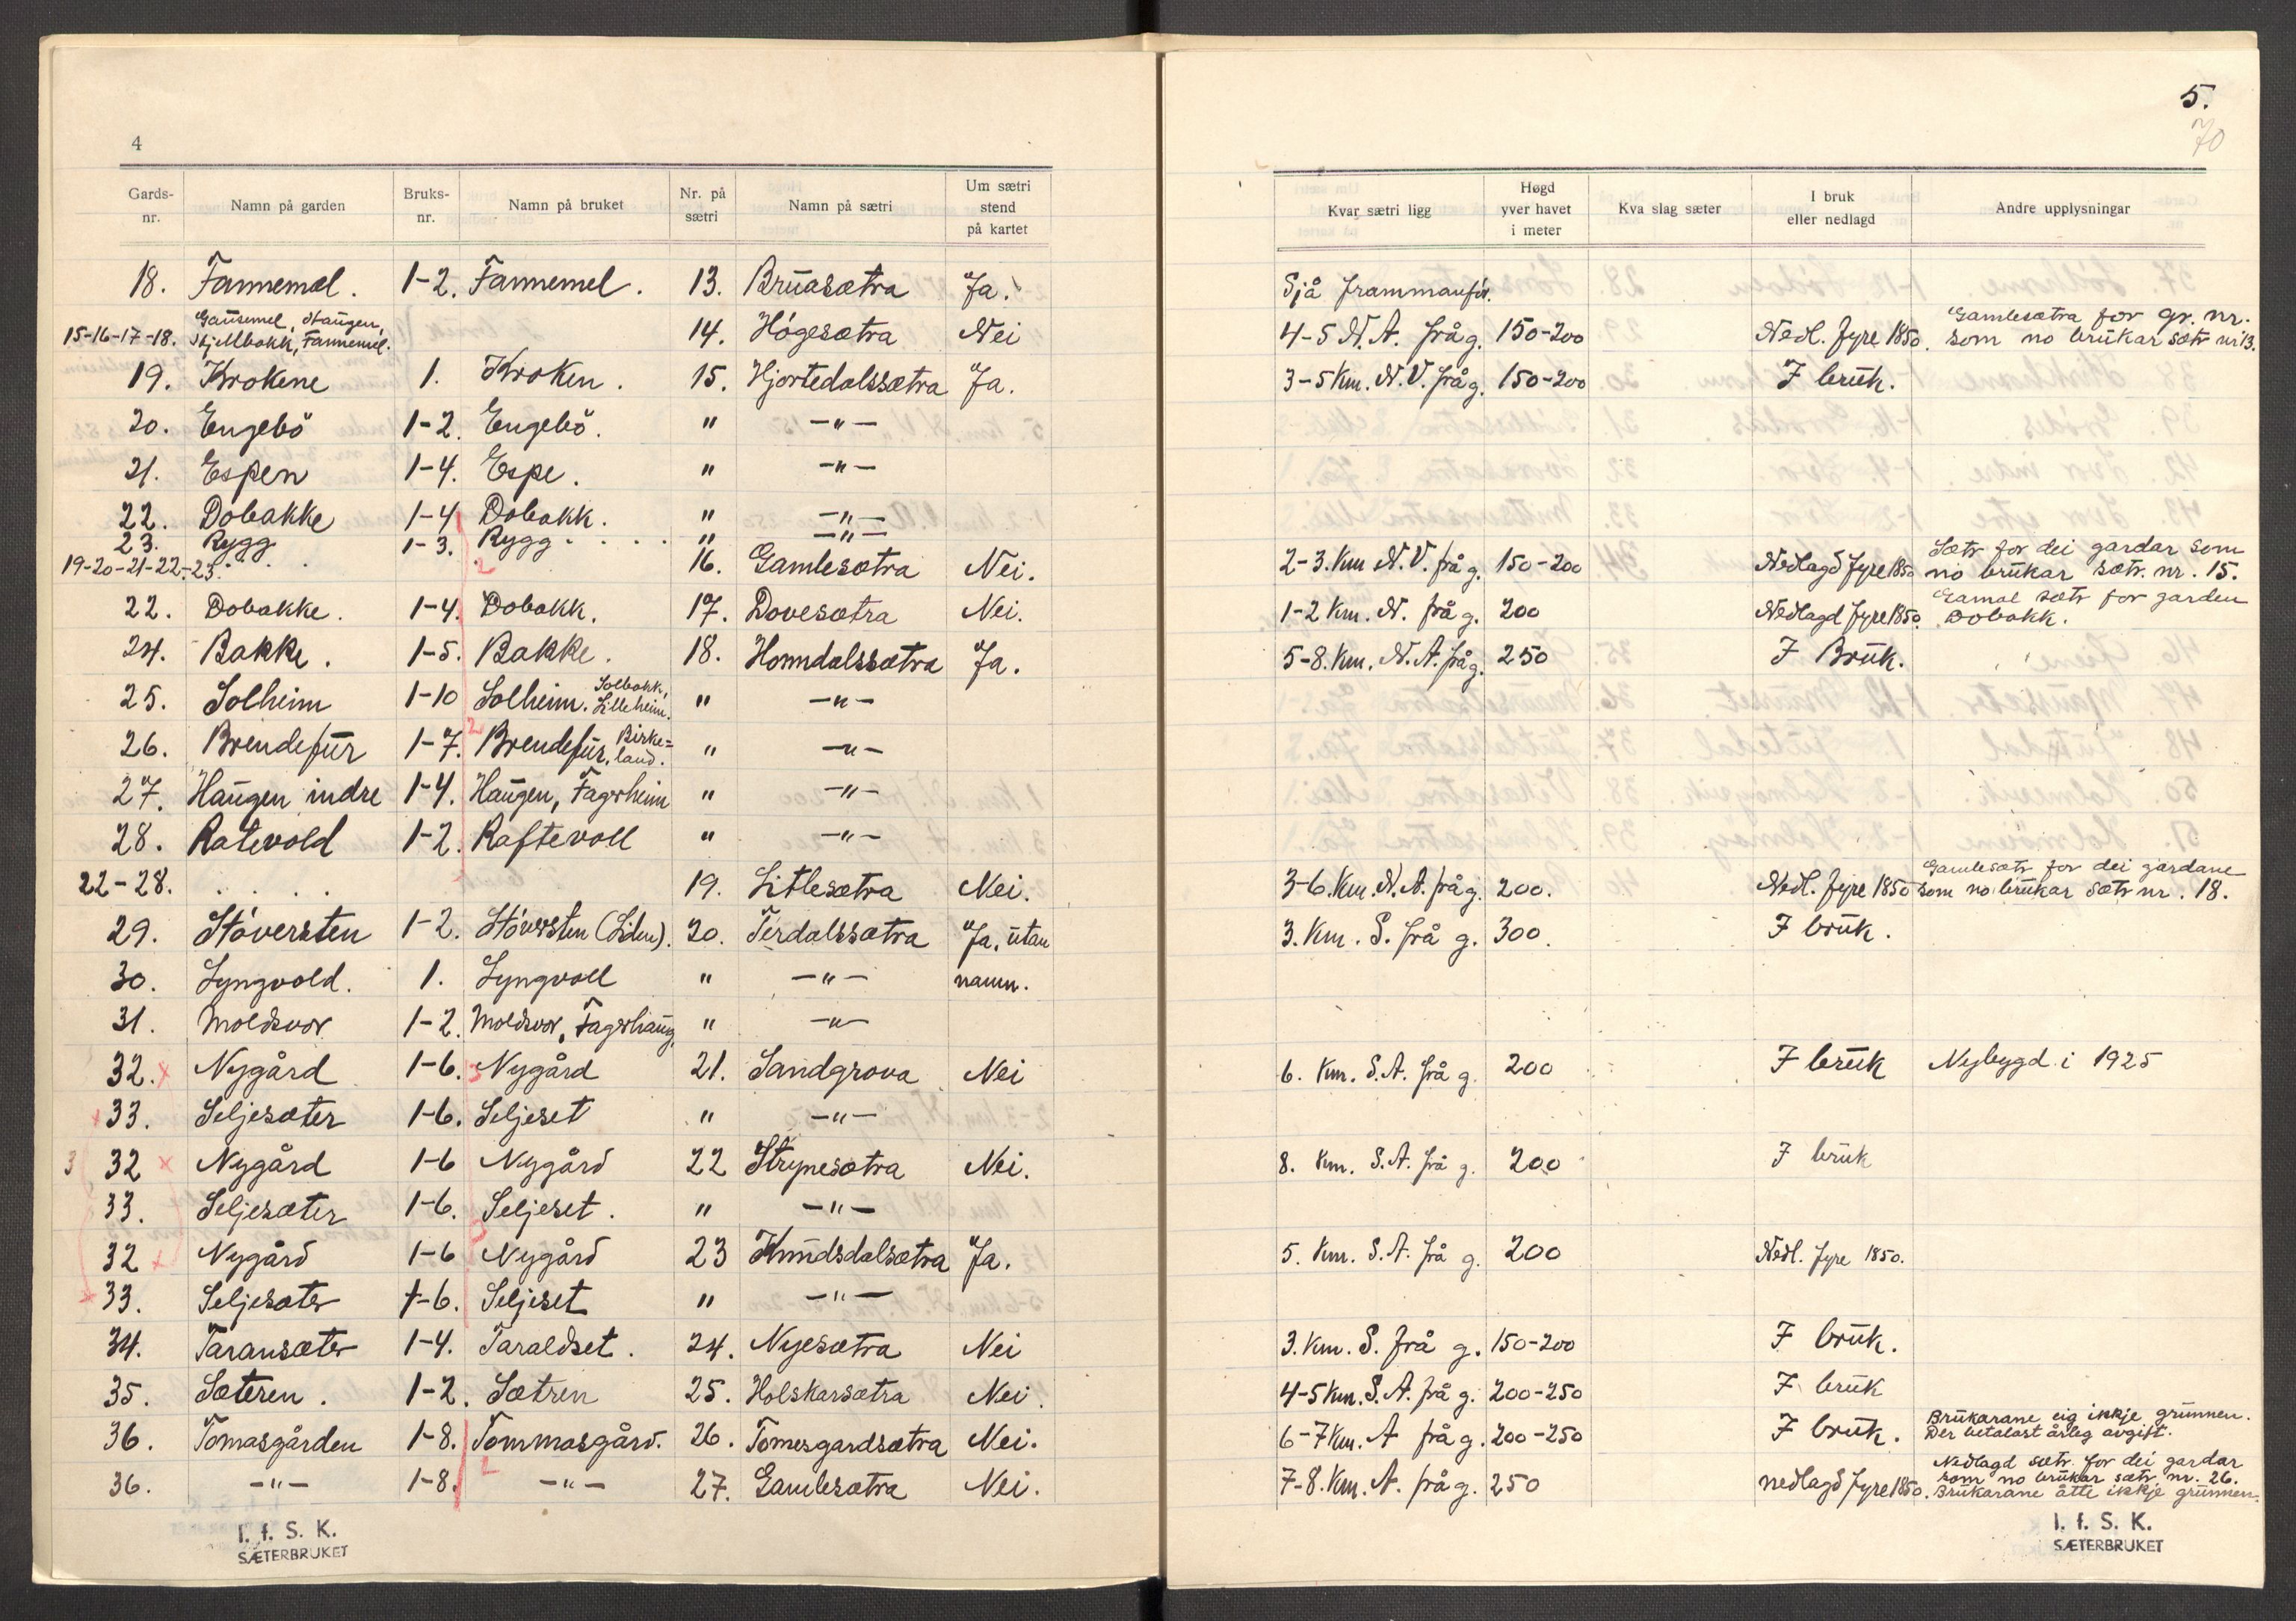 4
Gards-nr. Namn på garden Bruks-nr. Namn på bruket Nr. på sætri Namn på sætri Um sætri stend på kartet
18. Fannemæl. 1-2. Fannemel. 13. Bruasætra Ja.
15-16-17-18. Gausemel, Haugen, Skjellbakk, Fannemel. 14. Högesætra Nei
19. Krokene 1. Kroken. 15. Hjortedalssætra Ja.
20. Engebö 1-2. Engebö. " -"-
21. Espen 1-4. Espe. " -"-
22. Dobakke 1-4 Dobakk. " -"-
23. Rygg 1-3. Rygg . . . . " -"-
19-20-21-22-23. . . 2 16. Gamlesætra Nei.
22. Dobakke. 1-4. Dobakk. 17. Dovesætra Nei.
24. Bakke. 1-5. Bakke. 18. Horndalssætra Ja.
25. Solheim 1-10 Solheim. Solbakk, Lilleheim. " -"-
26. Brendefur 1-7. 2 Brendefur, Birke=land. " -"-
27. Haugen indre 1-4. Haugen, Fagerheim " -"-
28. Ratevold 1-2. Raftevoll " -"-
22-28. . . . . 19. Litlesætra Nei.
29. Stöversten 1-2. Stöversten (Liden). 20. Terdalssætra Ja, utan
30. Lyngvold. 1. Lyngvoll " -"- namn.
31. Moldsvor 1-2. Moldsvor, Fagerhaug, " -"-
32. x Nygård 1-6. 3 Nygård 21. Sandgrova Nei
x 33. Seljesæter 1-6. Seljeset " -"-
3 32 x Nygård 1-6 Nygård 22 Strynesætra Nei.
33. Seljesæter 1-6. Seljeset. " -"-
32 x Nygård 1-6 3 Nygård 23 Knudsdalsætra Ja.
x 33. Seljesæter 1-6. Seljeset " -"-
34. Taransæter 1-4. Taraldset. 24. Nyesætra Nei
35. Sæteren. 1-2. Sætren 25. Holskarsætra Nei.
36. Tomasgården 1-8. Tommasgård. 26. Tomesgardsætra Nei.
36. -"- 1-8. 2 -"- 27. Gamlesætra Nei.
I. f. S. K.
SÆTERBRUKET
5.
70
Kvar sætri ligg Høgd yver havet i meter Kva slag sæter I bruk eller nedlagd Andre upplysningar
Sjå frammanfor.
4-5 N.A. frå g. 150-200 Nedl. fyre 1850. Gamlesætra for gr. nr.
som no brukar sætr nr 13.
3-5 Km. N.V. frå g. 150-200 I bruk.
2-3. Km N.V. frå g. 150-200 Nedlagd fyre 1850 Sætr for dei gardar som
no brukar sætr. nr. 15.
1-2 Km. N. frå g. 200 Nedlagd fyre 1850. Gamal sætr for garden
Dobakk.
5-8. Km. N.A. frå g. 250 I Bruk.
3-6. Km. N.A. frå g. 200. Nedl. fyre 1850 Gamlesætr for dei gardane
som no brukar sætr nr. 18.
3. Km. S. frå g. 300. I bruk.
6. Km. S.A. frå g. 200 I bruk Nybygd i 1925
8. Km. S.A. frå g. 200 I bruk
5. Km. S.A. frå g. 200 Nedl. fyre 1850.
3. Km. S. frå g. 150-200 I bruk.
4-5 Km. S.A. frå g. 200-250 I bruk
6-7 Km. A frå g. 200-250 I bruk. Brukarane eig ikkje grunnen.
Der betalast årleg avgift.
7-8. Km. A. frå g. 250 nedlagd fyre 1850. Nedlagd sætr. for dei gardar
som no brukar sætr. nr. 26.
Brukarane åtte ikkje grunnen.
I. f. S. K.
SÆTERBRUKET